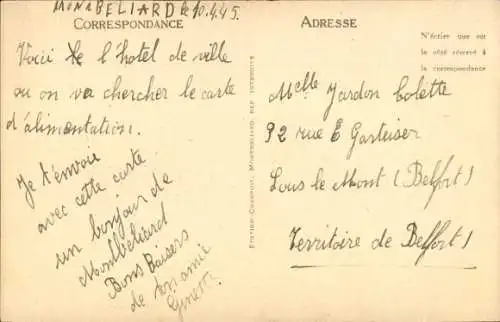 MONTBELIARD le 10.4.45.
CORRESPONDANCE
Voici le l'hôtel de ville
ou on va chercher le carte
d'alimentation.
Je t'envoie
avec cette carte
un bonjour de
Montbéliard
Bons Baisers
de ton amie
Ginette
EDITION CHAMPOIT, MONTBELIARD. REP. INTERDITE
ADRESSE
N'écrire que sur
le côté réservé à
la correspondance
Melle Jardon Colette
92 rue E Garteiser
Sous le Mont (Belfort)
Territoire de Belfort)